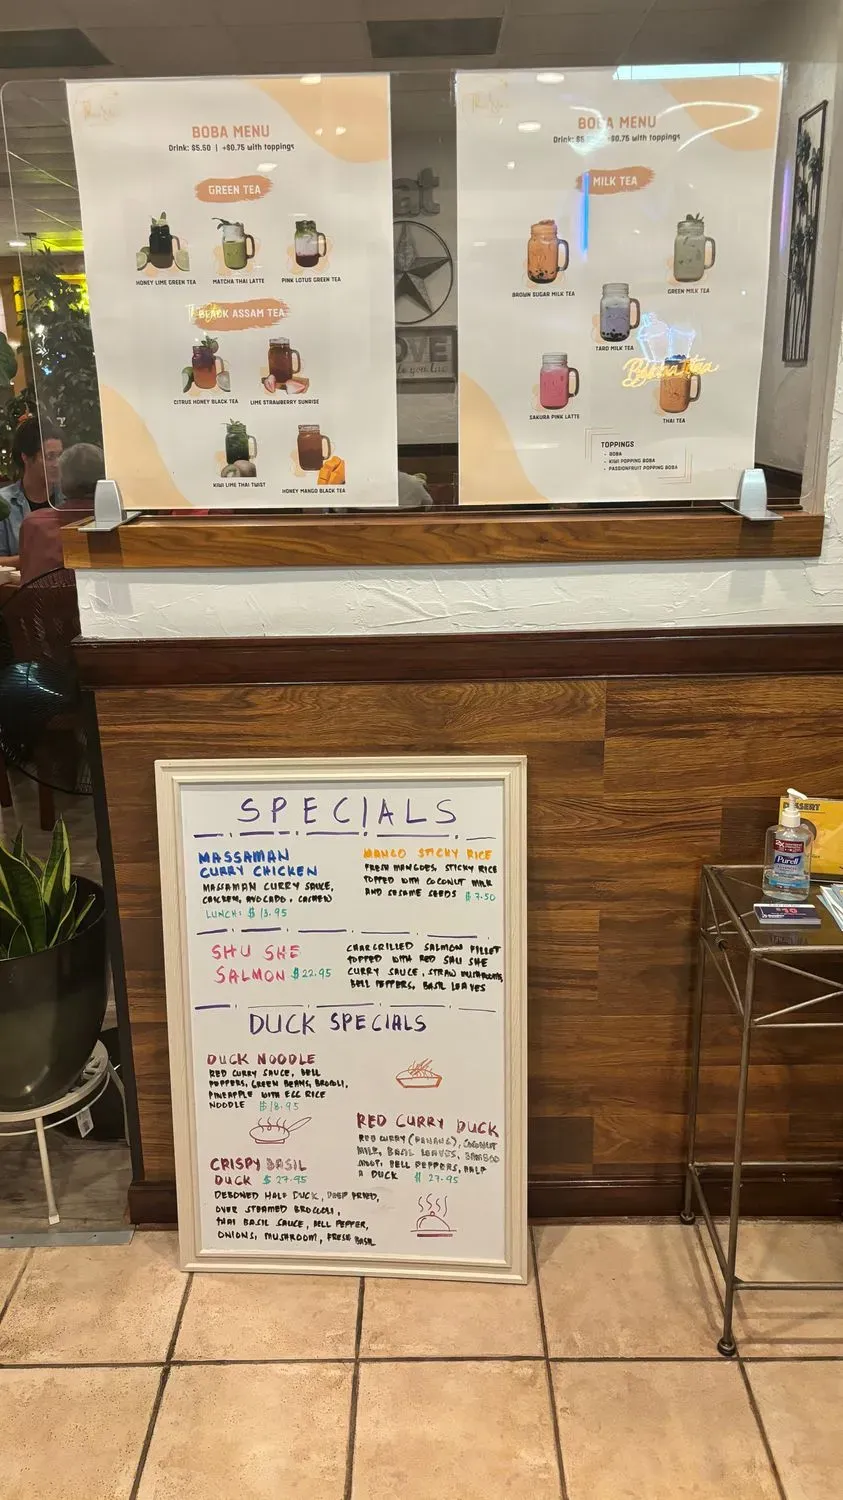 BOBA MENU
Drink: $5.50 | +$0.75 with toppings
GREEN TEA
HONEY LIME GREEN TEA
MATCHA THAI LATTE
PINK LOTUS GREEN TEA
BLACK ASSAM TEA
CITRUS HONEY BLACK TEA
LIME STRAWBERRY SUNRISE
KIWI LIME THAI TWIST
HONEY MANGO BLACK TEA
BOBA MENU
Drink: $5 +$0.75 with toppings
MILK TEA
BROWN SUGAR MILK TEA
GREEN MILK TEA
TARO MILK TEA
SAKURA PINK LATTE
THAI TEA
TOPPINGS
- BOBA
- KIWI POPPING BOBA
- PASSIONFRUIT POPPING BOBA
at
OVE
SPECIALS
MASSAMAN
CURRY CHICKEN
MASSAMAN CURRY SAUCE,
CHICKEN, AVOCADO, CASHEW
LUNCH: $13.95
MANGO STICKY RICE
FRESH MANGOES, STICKY RICE
TOPPED WITH COCONUT MILK
AND SESAME SEEDS $7.50
SHU SHE
SALMON $22.95
CHARGRILLED SALMON FILLET
TOPPED WITH RED SHU SHE
CURRY SAUCE, STRAW MUSHROOMS,
BELL PEPPERS, BASIL LEAVES
DUCK SPECIALS
DUCK NOODLE
RED CURRY SAUCE, BELL
PEPPERS, GREEN BEANS, BROCOLI,
PINEAPPLE WITH EGG RICE
NOODLE $18.95
RED CURRY DUCK
RED CURRY (PANANG), COCONUT
MILK, BASIL LEAVES, BAMBOO
SHOOT, BELL PEPPERS, HALF
A DUCK $27.95
CRISPY BASIL
DUCK $27.95
DEBONED HALF DUCK, DEEP FRIED,
OVER STEAMED BROCCOLI,
THAI BASIL SAUCE, BELL PEPPER,
ONIONS, MUSHROOM, FRESH BASIL
DESSERT
Purell
$10